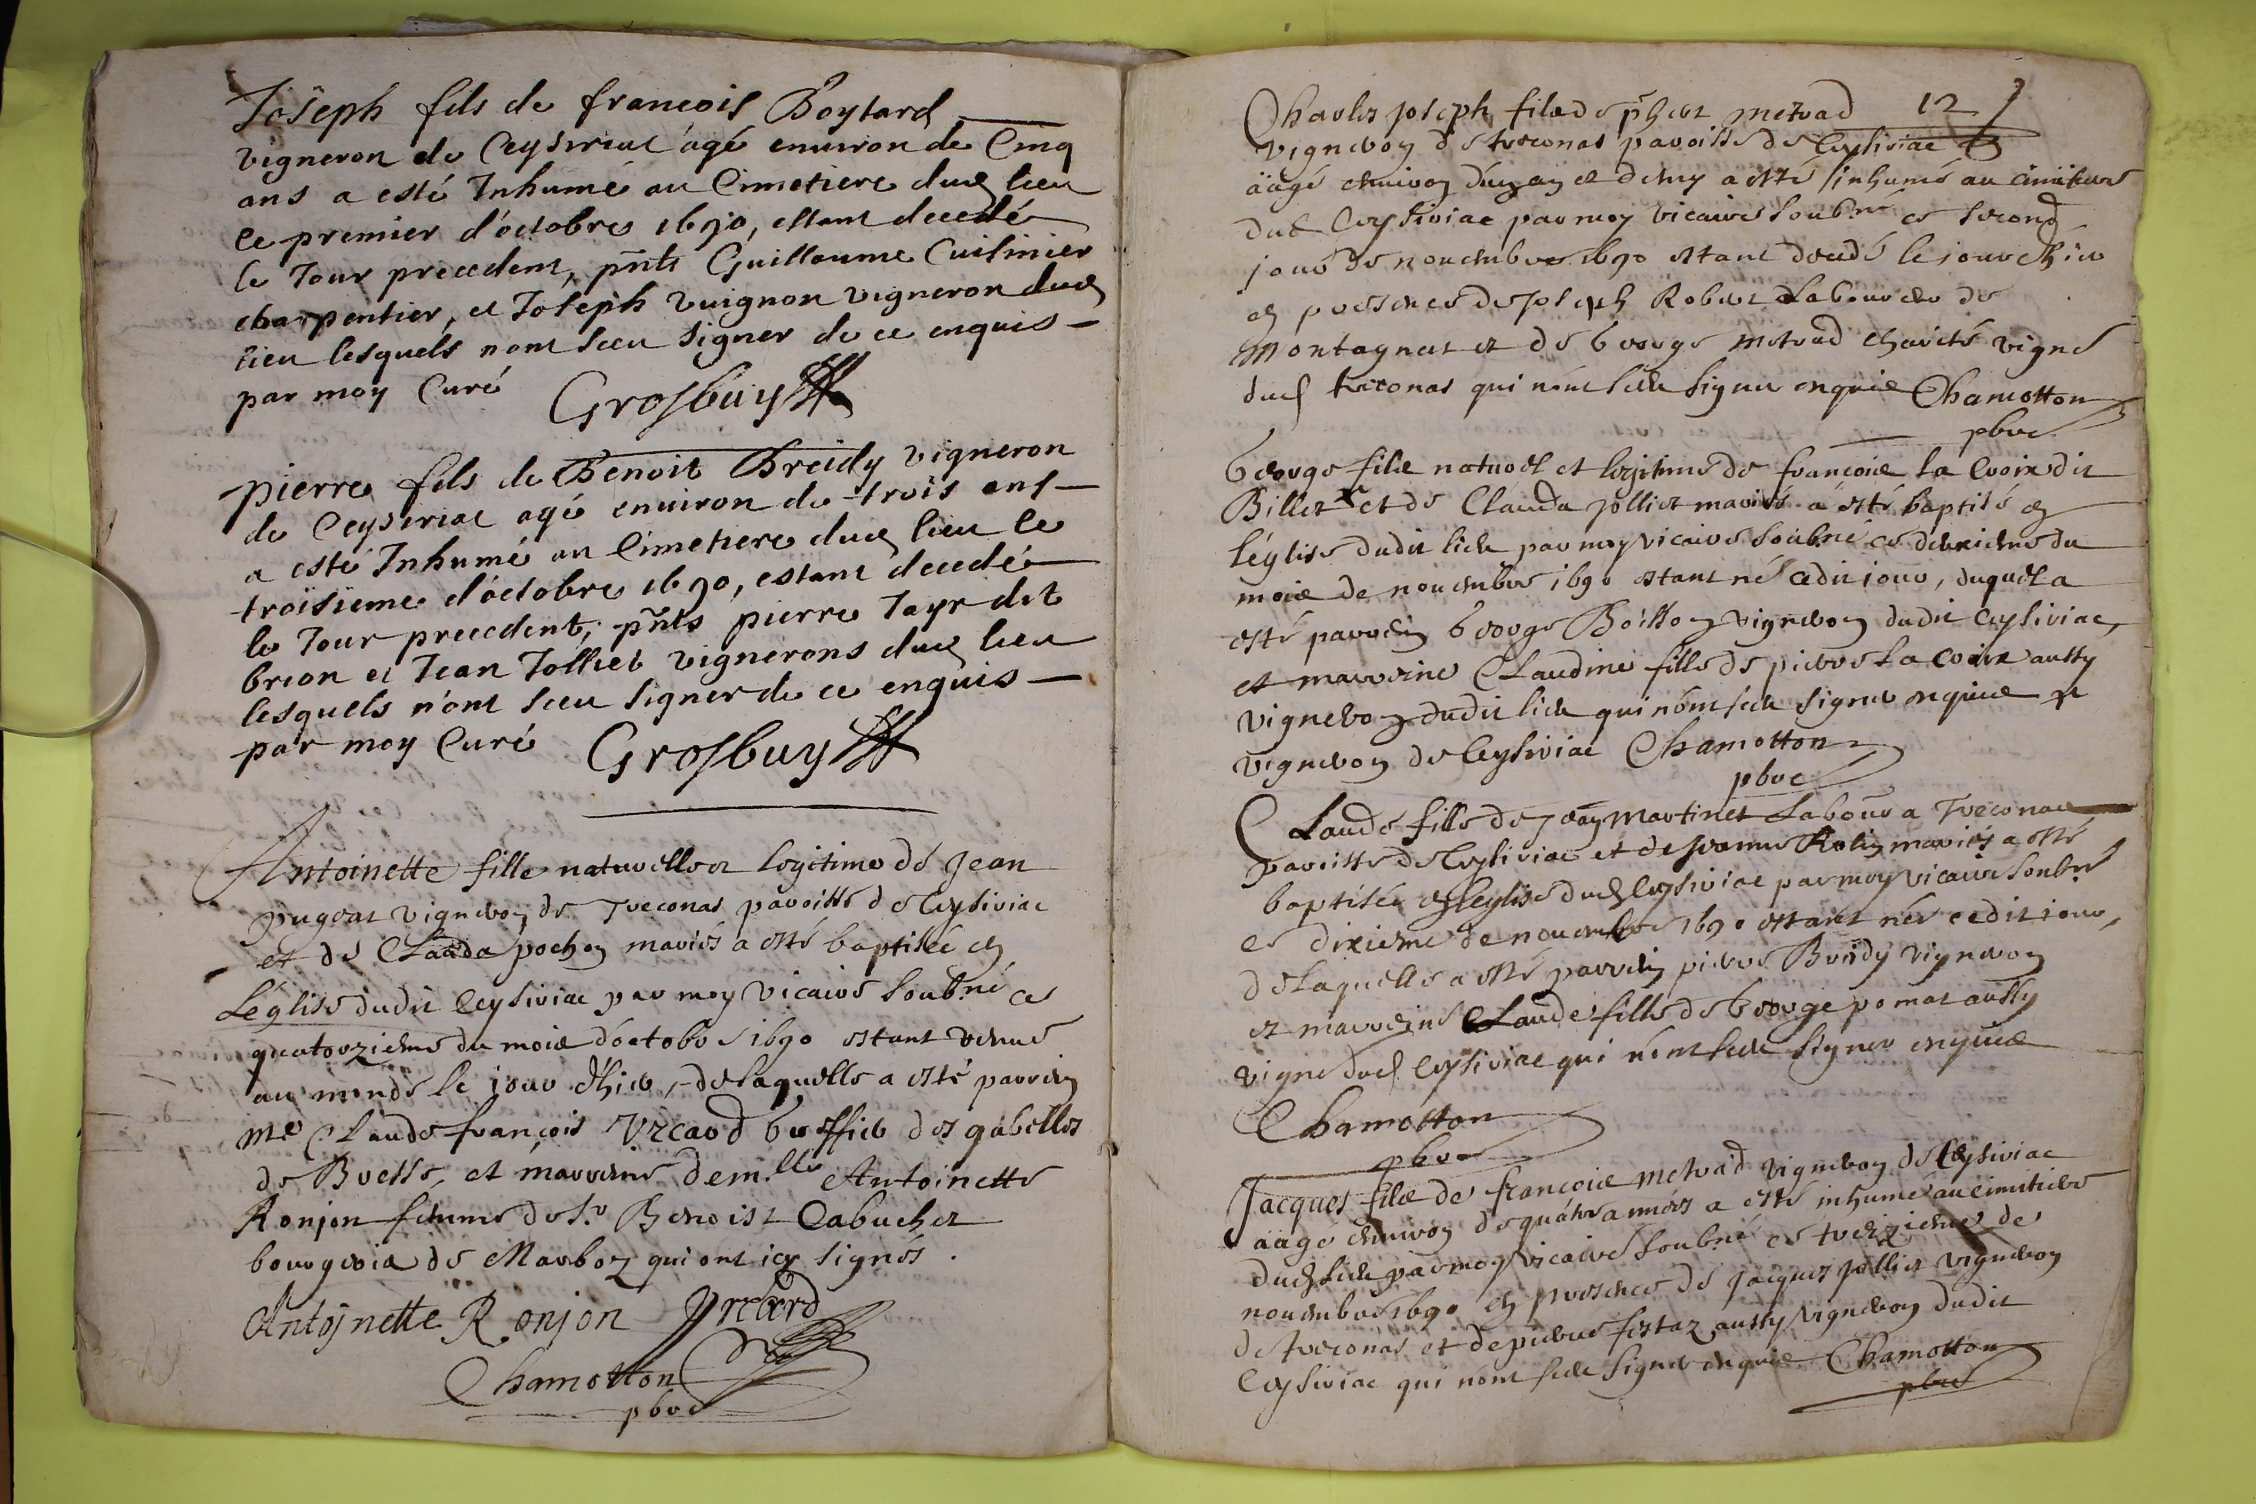 Joseph fils de francois Boytard
vigneron de Ceyseriat agé enuiron de Cinq
ans a esté Inhumé au Cimetiere dud lieu
le premier d'octobre 1690, estant decedé
le Jour precedent, pnts Guillaume Cuisinier
charpentier, et Joseph vuignon vigneron dud
lieu lesquels nont sceu signer de ce enquis
par moy Curé Grosbuy
pierre fils de Benoit Breidy vigneron
de Ceyseriat agé enuiron de trois ans
a esté Inhumé au Cimetiere dud lieu le
troisieme d'octobre 1690, estant decedé
le Jour precedent, pnts pierre Jayr dit
brion et Jean Jolliet vignerons dud lieu
lesquels n'ont sceu signer de ce enquis
par moy Curé Grosbuy
Antoinette fille naturelle et legitime de Jean
pugeat vigneron de Treconas paroisse de Ceysiriac
et de Clauda pochon mariés a esté baptisée en
L'église dudit Ceysiriac par moy vicaire soubné ce
quatorzieme du mois d'octobre 1690 estant venue
au monde le jour d'hier, de laquelle a esté parrein
me Claude francois Vrcard offier des gabelles
de Bresse, et marreine demlle Antoinette
Ronjon femme de sr Benoist Cabuchet
bourgeois de Marboz qui ont icy signés.
Antojnette Ronjon Vrcard
Chamotton
pbre
12
Charles joseph fils de phert metrad
vigneron de treconas paroisse de Ceysiriac
aagé enuiron d'un an et demy a esté inhumé au cimitiere
dud Ceysiriac par moy vicaire soubné ce second
jour de nouembre 1690 estant decedé le jour d'hier
en presence de joseph Robert Laboureur de
Montagnat et de George metrad charité vigne
dud treconas qui n'ont sceu signer enquis Chamotton
pbre
George fils naturel et legitime de francois La Croix dit
Billet et de Clauda jolliet mariés a esté baptisé en
l'église dudit lieu par moy vicaire soubné ce deuxieme du
mois de nouembre 1690 estant né cedit jour, duquel a
esté parrein George Boisson vigneron dudit Ceysiriac,
et marreine Claudine fille de pierre La Croix aussy
vigneron dudit lieu qui n'ont sceu signer enquis
vigneron de Ceysiriac Chamotton
pbre
Claude fille de Jean Martinet Labour a Treconas
paroisse de Ceysiriac et de jeanne Rolin mariés a esté
baptisée en l'eglise dud Ceysiriac par moy vicaire soubné
ce dixieme de nouembre 1690 estant née cedit jour,
de laquelle a esté parrein pierre Breidy vigneron
et marreine Claude fille de George pomat aussy
vigne dud Ceysiriac qui n'ont sceu signer enquis
Chamotton
pbre
Jacques fils de francois metrad vigneron de Ceysiriac
aagé enuiron de quatre années a esté inhumé au cimitiere
dud lieu par moy vicaire soubné ce treizieme de
nouembre 1690 en presence de jacques jolliet vigneron
de treconas et de pierre festaz aussy vigneron dudit
Ceysiriac qui n'ont sceu signer enquis Chamotton
pbre